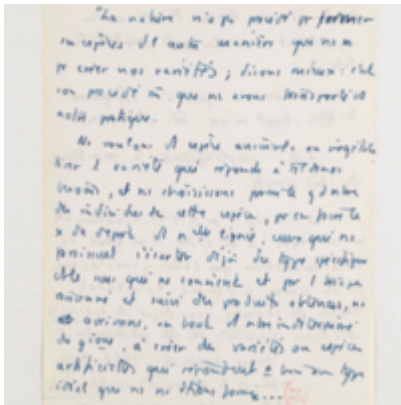 "La nature n'a pu procédé pr former
ses espèces d'1 autre manière que ns ns
pr créer nos variétés ; disons mieux : c'est
son procédé m̂ que ns avons transporté ds
notre pratique.
Ns voulons d'1 espèce animale ou végétale
tirer 1 variété qui réponde à tel de nos
besoins, et ns choisissons parmi le gd nombre
des individus de cette espèce, pr en faire le
pt de départ d'1 nlle lignée, ceux qui ns
paraissent s'écarter déjà du type spécifique
ds le sens qui ns convient et par 1 triage
raisonné et suivi des produits obtenus, ns
arrivons, au bout d'1 nbre indéterminé
de génér. à créer des variétés ou espèces
artificielles qui répondent ± bien au type
idéal que ns ns étions formé...